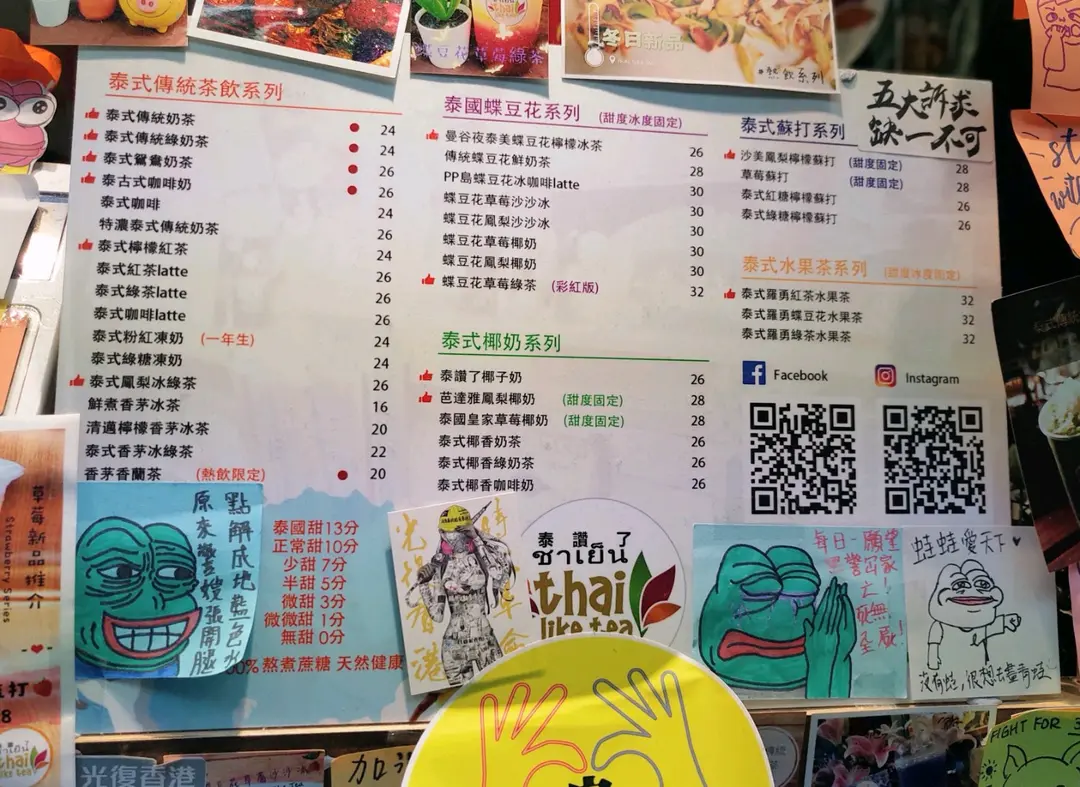 冬日新品
蝶豆花草莓綠茶
熱飲系列
泰式傳統茶飲系列
泰式傳統奶茶 24
泰式傳統綠奶茶 24
泰式鴛鴦奶茶 26
泰古式咖啡奶 26
泰式咖啡 24
特濃泰式傳統奶茶 26
泰式檸檬紅茶 24
泰式紅茶latte 26
泰式綠茶latte 26
泰式咖啡latte 26
泰式粉紅凍奶 (一年生) 24
泰式綠糖凍奶 24
泰式鳳梨冰綠茶 26
鮮煮香茅冰茶 16
清邁檸檬香茅冰茶 20
泰式香茅冰綠茶 22
香茅香蘭茶 (熱飲限定) 20
泰國蝶豆花系列 (甜度冰度固定)
曼谷夜泰美蝶豆花檸檬冰茶 26
傳統蝶豆花鮮奶茶 28
PP島蝶豆花冰咖啡latte 30
蝶豆花草莓沙沙冰 30
蝶豆花鳳梨沙沙冰 30
蝶豆花草莓椰奶 30
蝶豆花鳳梨椰奶 30
蝶豆花草莓綠茶 (彩紅版) 32
泰式椰奶系列
泰讚了椰子奶 26
芭達雅鳳梨椰奶 (甜度固定) 28
泰國皇家草莓椰奶 (甜度固定) 28
泰式椰香奶茶 26
泰式椰香綠奶茶 26
泰式椰香咖啡奶 26
泰式蘇打系列
沙美鳳梨檸檬蘇打 (甜度固定) 28
草莓蘇打 (甜度固定) 28
泰式紅糖檸檬蘇打 26
泰式綠糖檸檬蘇打 26
五大訴求
缺一不可
泰式水果茶系列 (甜度冰度固定)
泰式羅勇紅茶水果茶 32
泰式羅勇蝶豆花水果茶 32
泰式羅勇綠茶水果茶 32
Facebook
Instagram
泰國甜13分
正常甜10分
少甜 7分
半甜 5分
微甜 3分
微微甜 1分
無甜 0分
%熬煮蔗糖 天然健康
點解成地藍色水
原來警嫂張開腿
光復香港
時代革命
泰讚了
ชาเย็น
thai
like tea
每日一願望
黑警冚家
亡！
死無
全屍！
蛙蛙愛天下
沒有蛙，很想去盡青蛙
草莓新品推介
Strawberry Series
光復香港
加
FIGHT FOR